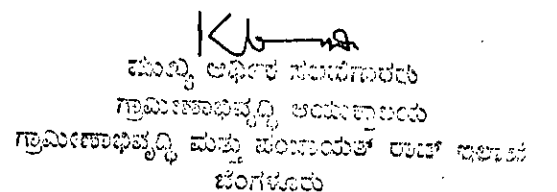 ಮುಖ್ಯ ಆರ್ಥಿಕ ಸಲಹೆಗಾರರು
ಗ್ರಾಮೀಣಾಭಿವೃದ್ಧಿ ಆಯುಕ್ತಾಲಯ
ಗ್ರಾಮೀಣಾಭಿವೃದ್ಧಿ ಮತ್ತು ಪಂಚಾಯತ್ ರಾಜ್ ಇಲಾಖೆ
ಬೆಂಗಳೂರು